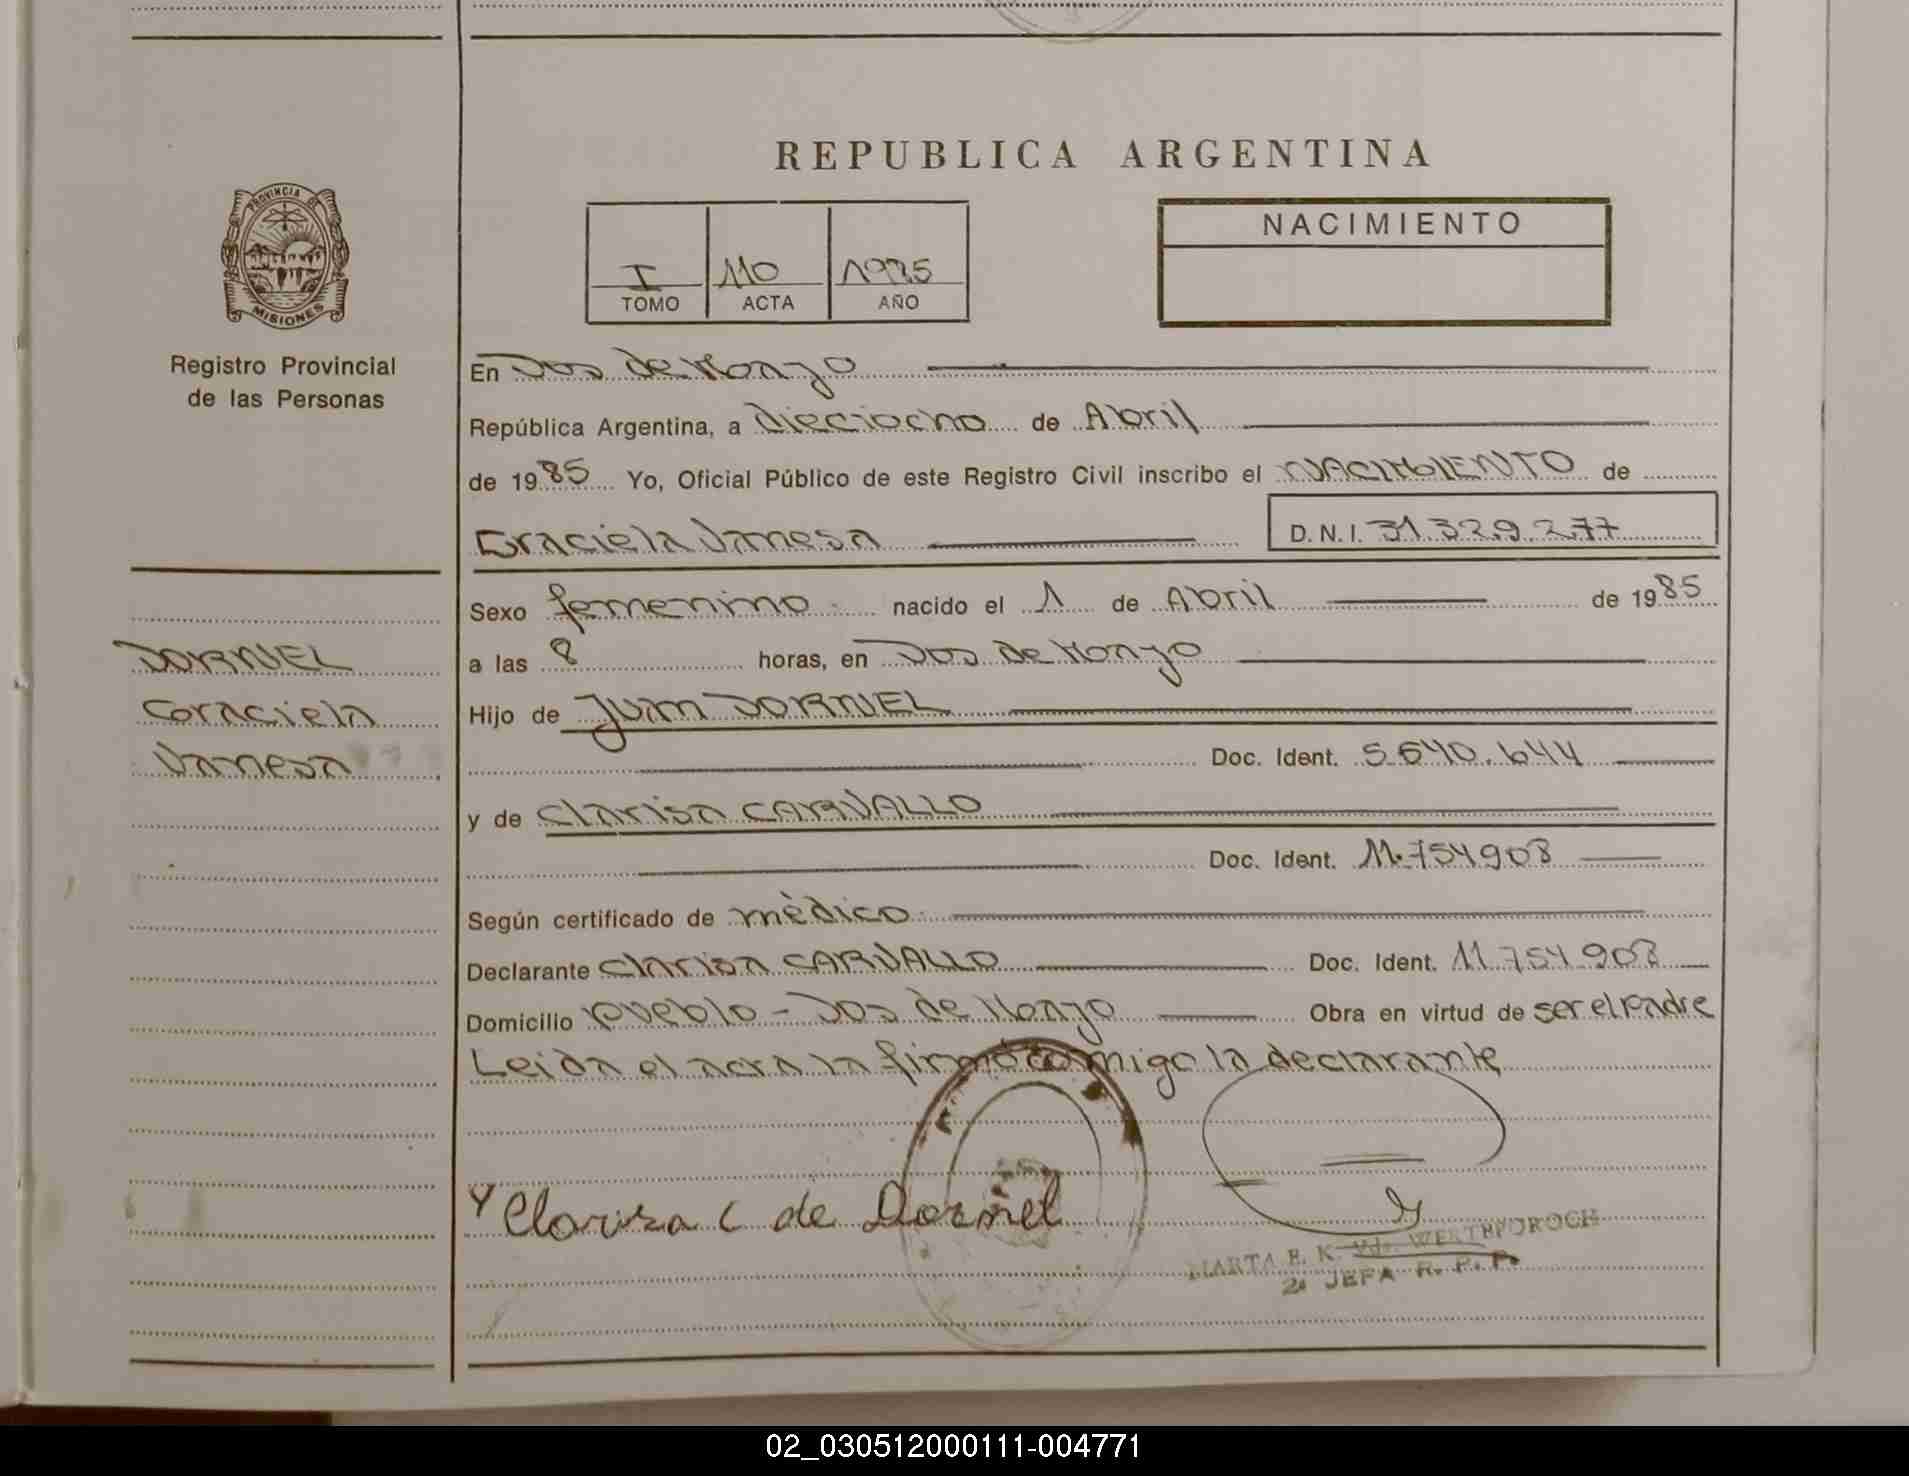 REPUBLICA ARGENTINA
PROVINCIA DE
MISIONES
Registro Provincial
de las Personas
I 110 1985
TOMO ACTA AÑO
NACIMIENTO
En Dos de Mayo
República Argentina, a dieciocho de Abril
de 1985 Yo, Oficial Público de este Registro Civil inscribo el NACIMIENTO de
Graciela Vanesa D.N.I. 31.329.277
Sexo femenino nacido el 1 de Abril de 1985
DORNEL
a las 8 horas, en Dos de Mayo
Graciela
Hijo de Juan DORNEL
Vanesa
Doc. Ident. 5.640.644
y de Clarisa CARVALLO
Doc. Ident. 11.754908
Según certificado de médico
Declarante Clarisa CARVALLO Doc. Ident. 11.754.908
Domicilio Pueblo - Dos de Mayo Obra en virtud de ser el Padre
Leida el acta la firma comigo la declarante
Clarisa C de Dornel
MARTA E. K. Vda. WERTENDROCH
2a JEFA R. P. P.
02_030512000111-004771